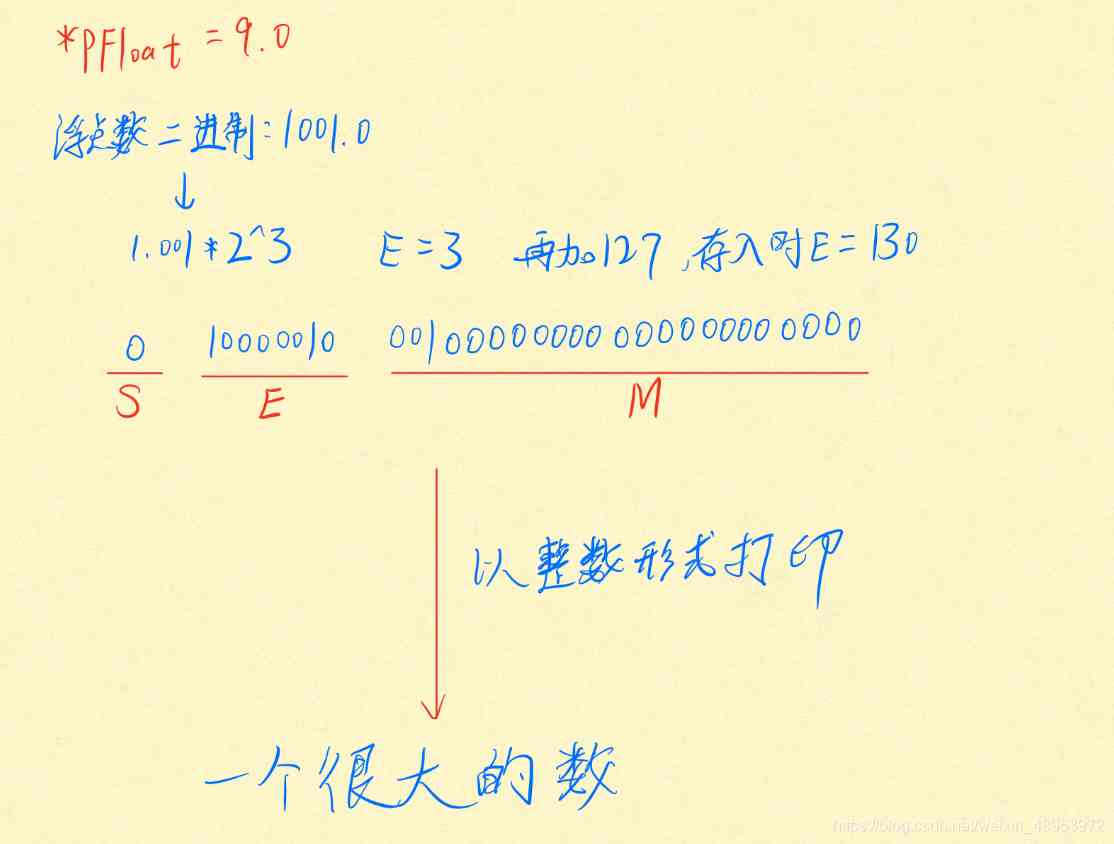 *pFloat = 9.0
浮点数二进制:1001.0
↓
1.001*2^3 E=3 再加127,存入时E=130
0 10000010 00100000000000000000000
S E M
以整数形式打印
一个很大的数
https://blog.csdn.net/weixin_48953972